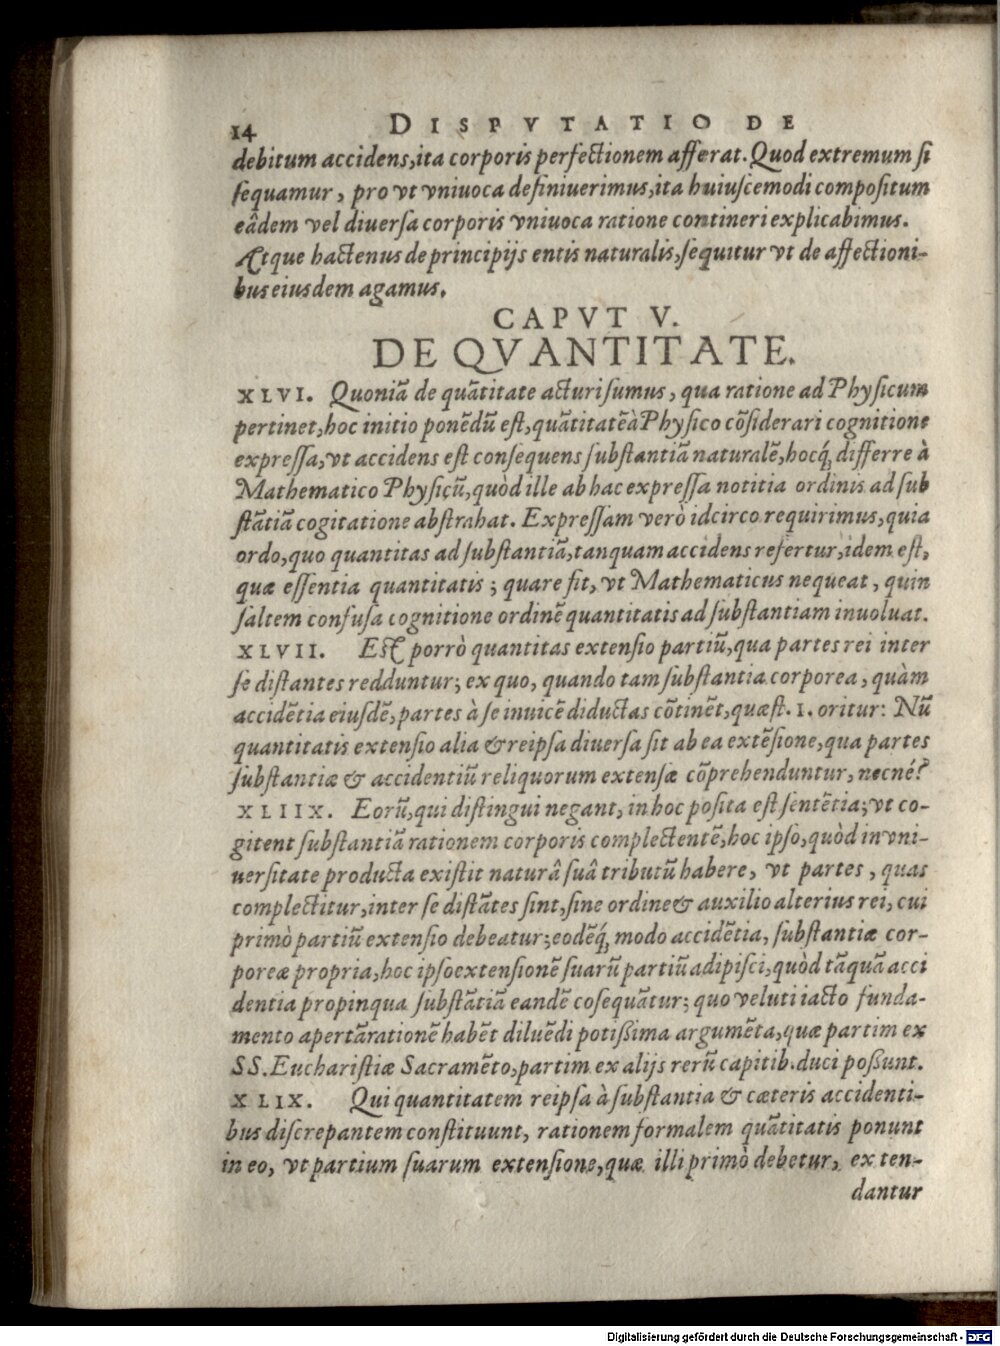 14 DISPVTATIO DE
debitum accidens, ita corporis perfectionem afferat. Quod extremum ſi
ſequamur, pro vt vniuoca definiuerimus, ita huiuſcemodi compoſitum
eâdem vel diuerſa corporis vniuoca ratione contineri explicabimus.
Atque hactenus de principijs entis naturalis, ſequitur vt de affectioni-
bus eiusdem agamus.
CAPVT V.
DE QVANTITATE.
XLVI. Quoniã de quãtitate acturi ſumus, qua ratione ad Phyſicum
pertinet, hoc initio ponẽdũ eſt, quãtitatẽ à Phyſico cõſiderari cognitione
expreſſa, vt accidens eſt conſequens ſubſtantiã naturalẽ, hocq́; differre à
Mathematico Phyſicũ, quòd ille ab hac expreſſa notitia ordinis ad ſub
ſtãtiã cogitatione abſtrahat. Expreſſam verò idcirco requirimus, quia
ordo, quo quantitas ad ſubſtantiã, tanquam accidens refertur, idem eſt,
quæ eſſentia quantitatis; quare fit, vt Mathematicus nequeat, quin
ſaltem confuſa cognitione ordinẽ quantitatis ad ſubſtantiam inuoluat.
XLVII. Eſt porrò quantitas extenſio partiũ, qua partes rei inter
ſe diſtantes redduntur; ex quo, quando tam ſubſtantia corporea, quàm
accidẽtia eiuſdẽ, partes à ſe inuicẽ diductas cõtinẽt, quæſt. 1. oritur: Nũ
quantitatis extenſio alia & reipſa diuerſa ſit ab ea extẽſione, qua partes
ſubſtantiæ & accidentiũ reliquorum extenſæ cõprehenduntur, necné?
XLIIX. Eorũ, qui diſtingui negant, in hoc poſita eſt ſentẽtia; vt co-
gitent ſubſtantiã rationem corporis complectentẽ, hoc ipſo, quòd in vni-
uerſitate producta exiſtit naturâ ſuâ tributũ habere, vt partes, quas
complectitur, inter ſe diſtãtes ſint, ſine ordine & auxilio alterius rei, cui
primò partiũ extenſio debeatur; eodẽq́; modo accidẽtia, ſubſtantiæ cor-
poreæ propria, hoc ipſo extenſionẽ ſuarũ partiũ adipiſci, quòd tãquã acci
dentia propinqua ſubſtãtiã eandẽ coſequãtur; quo veluti iacto funda-
mento apertã rationẽ habẽt diluẽdi potißima argumẽta, quæ partim ex
SS. Euchariſtiæ Sacramẽto, partim ex alijs rerũ capitib. duci poßunt.
XLIX. Qui quantitatem reipſa à ſubſtantia & cæteris accidenti-
bus diſcrepantem conſtituunt, rationem formalem quãtitatis ponunt
in eo, vt partium ſuarum extenſione, quæ illi primò debetur, exten-
dantur
Digitalisierung gefördert durch die Deutsche Forschungsgemeinschaft - DFG